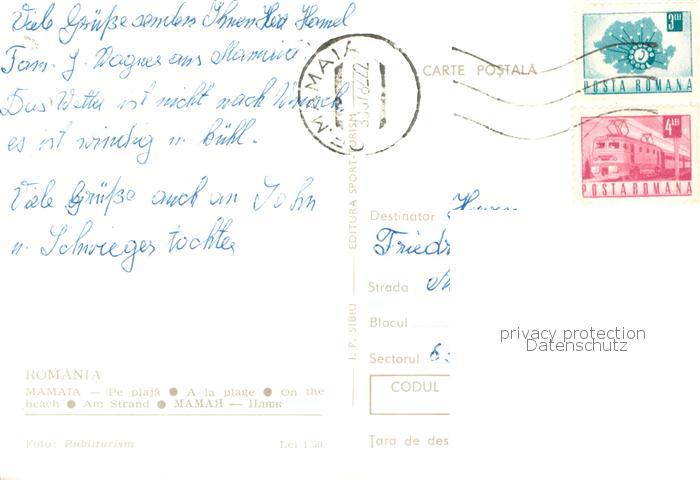 Viele Grüße senden Ihnen Herr Hamel
Fam. J. Wagner aus Mamaia.
Das Wetter ist nicht nach Wunsch
es ist windig u. kühl.
Viele Grüße auch an Sohn
u. Schwiegertochter
ROMÂNIA
MAMAIA — Pe plajă ● A la plage ● On the
beach ● Am Strand ● МАМАЯ — Пляж
Foto: Publiturism
Lei 1,50
I. P. SIBIU
EDITURA SPORT-TURISM
MAMAIA
CARTE POŞTALĂ
3 LEI
POSTA ROMANA
4 LEI
POSTA ROMANA
Destinatar
Friedr
Strada
Blocul
Sectorul 6
CODUL
Ţara de des
privacy protection
Datenschutz